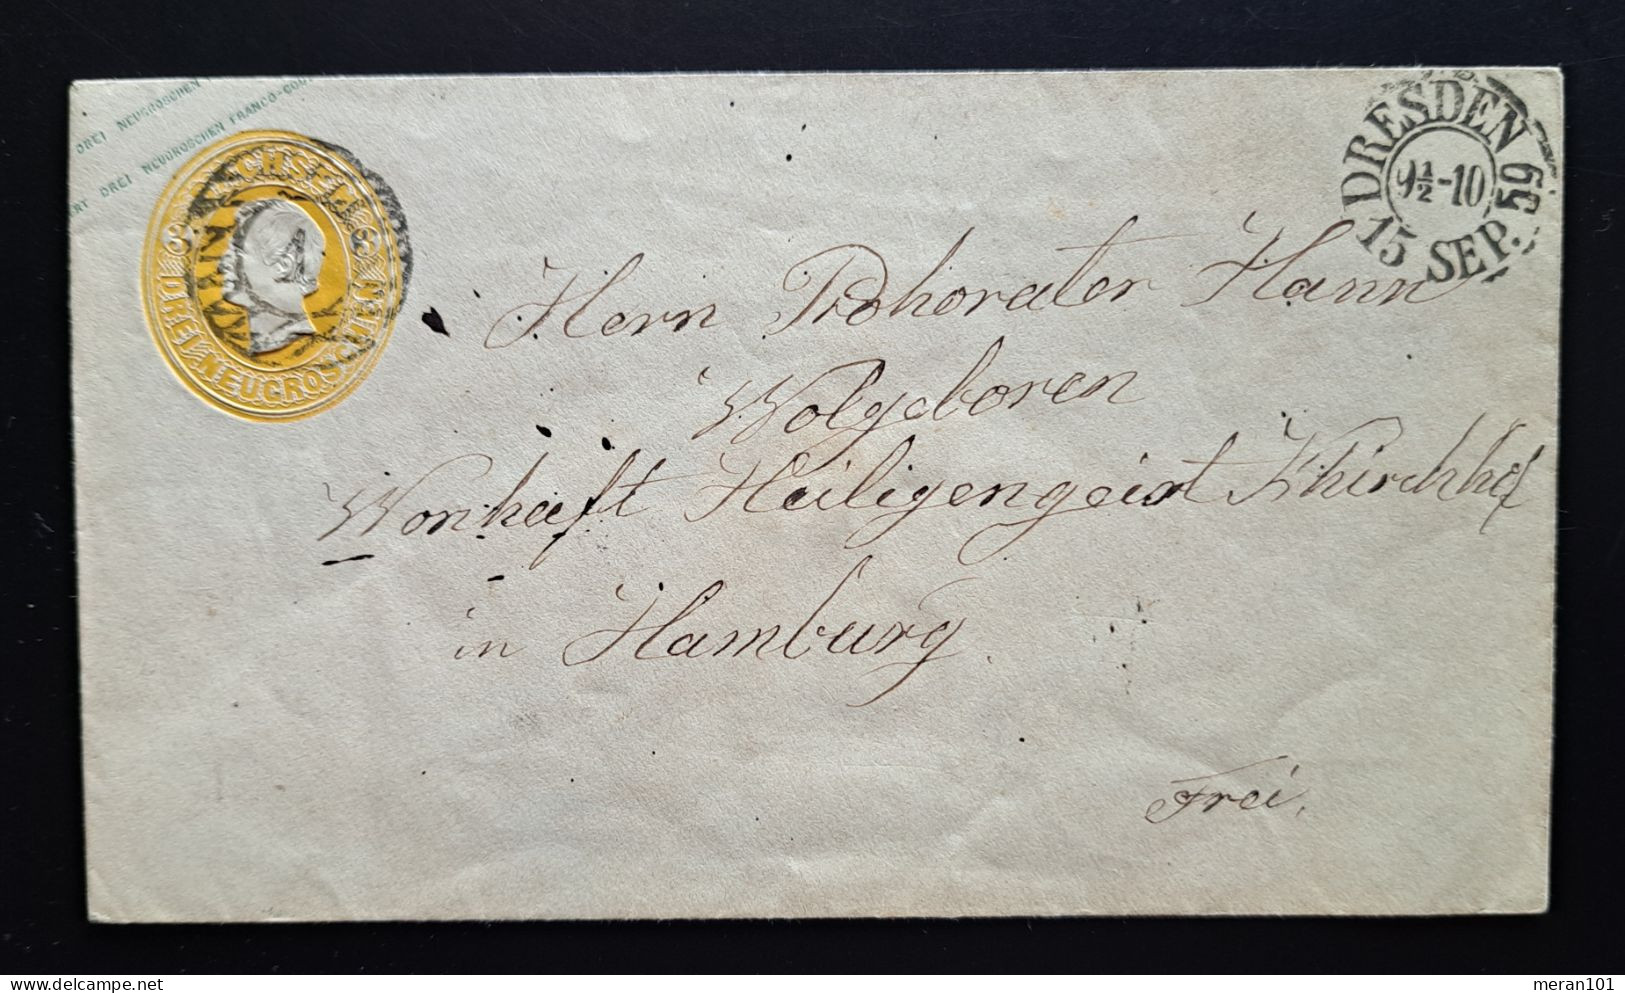 DREI NEUGROSCHEN
DREI NEUGROSCHEN FRANCO-COU
ERT
SACHSEN
3 3
DREI NEUGROSCHEN
1
DRESDEN
9½-10
15 SEP. 59
Hern Prohorater Hann
Wolgeboren
Wonhaft Heiligengeist Khirchhof
in Hamburg.
Frei.
meran101